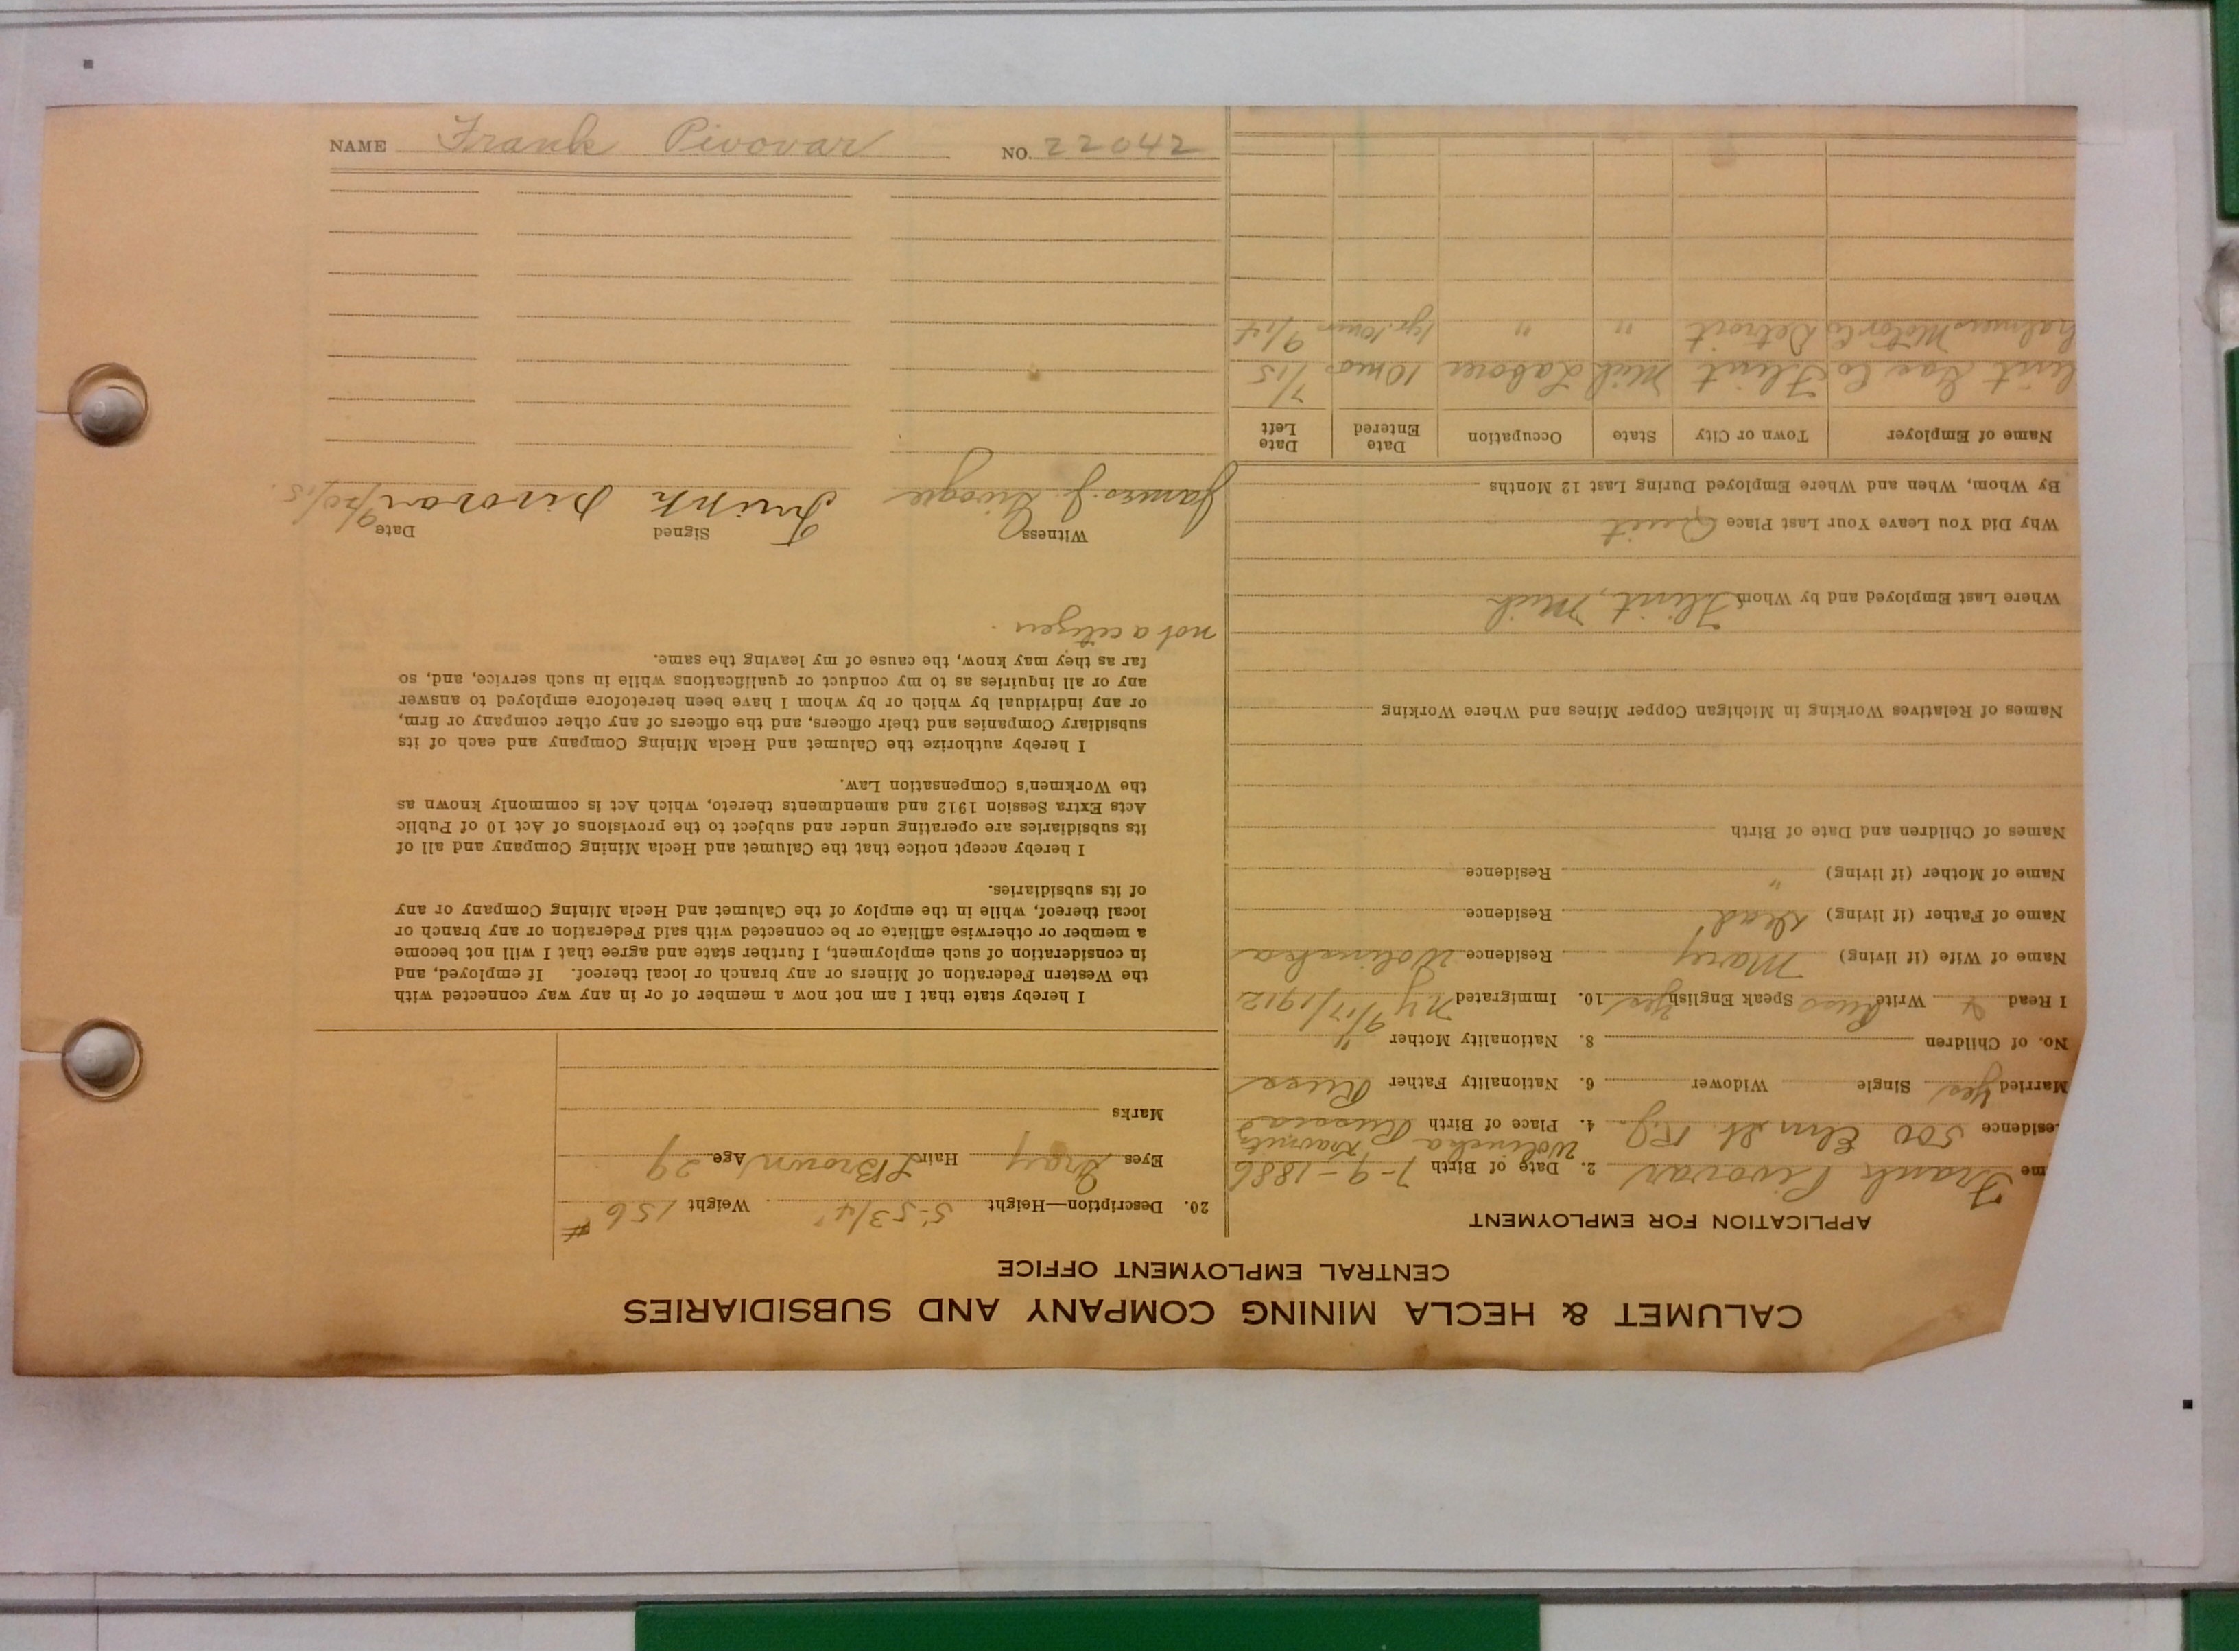 CALUMET & HECLA MINING COMPANY AND SUBSIDIARIES
CENTRAL EMPLOYMENT OFFICE
APPLICATION FOR EMPLOYMENT
me Frank Pivovar 2. Date of Birth 7-9-1886
esidence 500 Elm St. 4. Place of Birth Russia
Married Yes Single Widower 6. Nationality Father Russ
No. of Children 8. Nationality Mother "
I Read & Write Russ Speak English Yes 10. Immigrated N.Y. 9/17/1912
Name of Wife (if living) Mary Residence Wolinska
Name of Father (if living) Dead Residence
Name of Mother (if living) " Residence
Names of Children and Date of Birth
Names of Relatives Working in Michigan Copper Mines and Where Working
Where Last Employed and by Whom Flint, Mich
Why Did You Leave Your Last Place Quit
By Whom, When and Where Employed During Last 12 Months
Name of Employer Town or City State Occupation Date Entered Date Left
lint Gas Co Flint Mich Laborer 10 mos 7/15
halmers Motor Co Detroit " " 1yr. 10mos 9/14
20. Description—Height 5'-5 3/4" Weight 156 #
Eyes Gray Hair L Brown Age 29
Marks
I hereby state that I am not now a member of or in any way connected with
the Western Federation of Miners or any branch or local thereof. If employed, and
in consideration of such employment, I further state and agree that I will not become
a member or otherwise affiliate or be connected with said Federation or any branch or
local thereof, while in the employ of the Calumet and Hecla Mining Company or any
of its subsidiaries.
I hereby accept notice that the Calumet and Hecla Mining Company and all of
its subsidiaries are operating under and subject to the provisions of Act 10 of Public
Acts Extra Session 1912 and amendments thereto, which Act is commonly known as
the Workmen's Compensation Law.
I hereby authorize the Calumet and Hecla Mining Company and each of its
subsidiary Companies and their officers, and the officers of any other company or firm,
or any individual by which or by whom I have been heretofore employed to answer
any or all inquiries as to my conduct or qualifications while in such service, and, so
far as they may know, the cause of my leaving the same.
not a citizen.
Witness Signed Date
James J. 9/20/15.
NAME Frank Pivovar NO. 22042